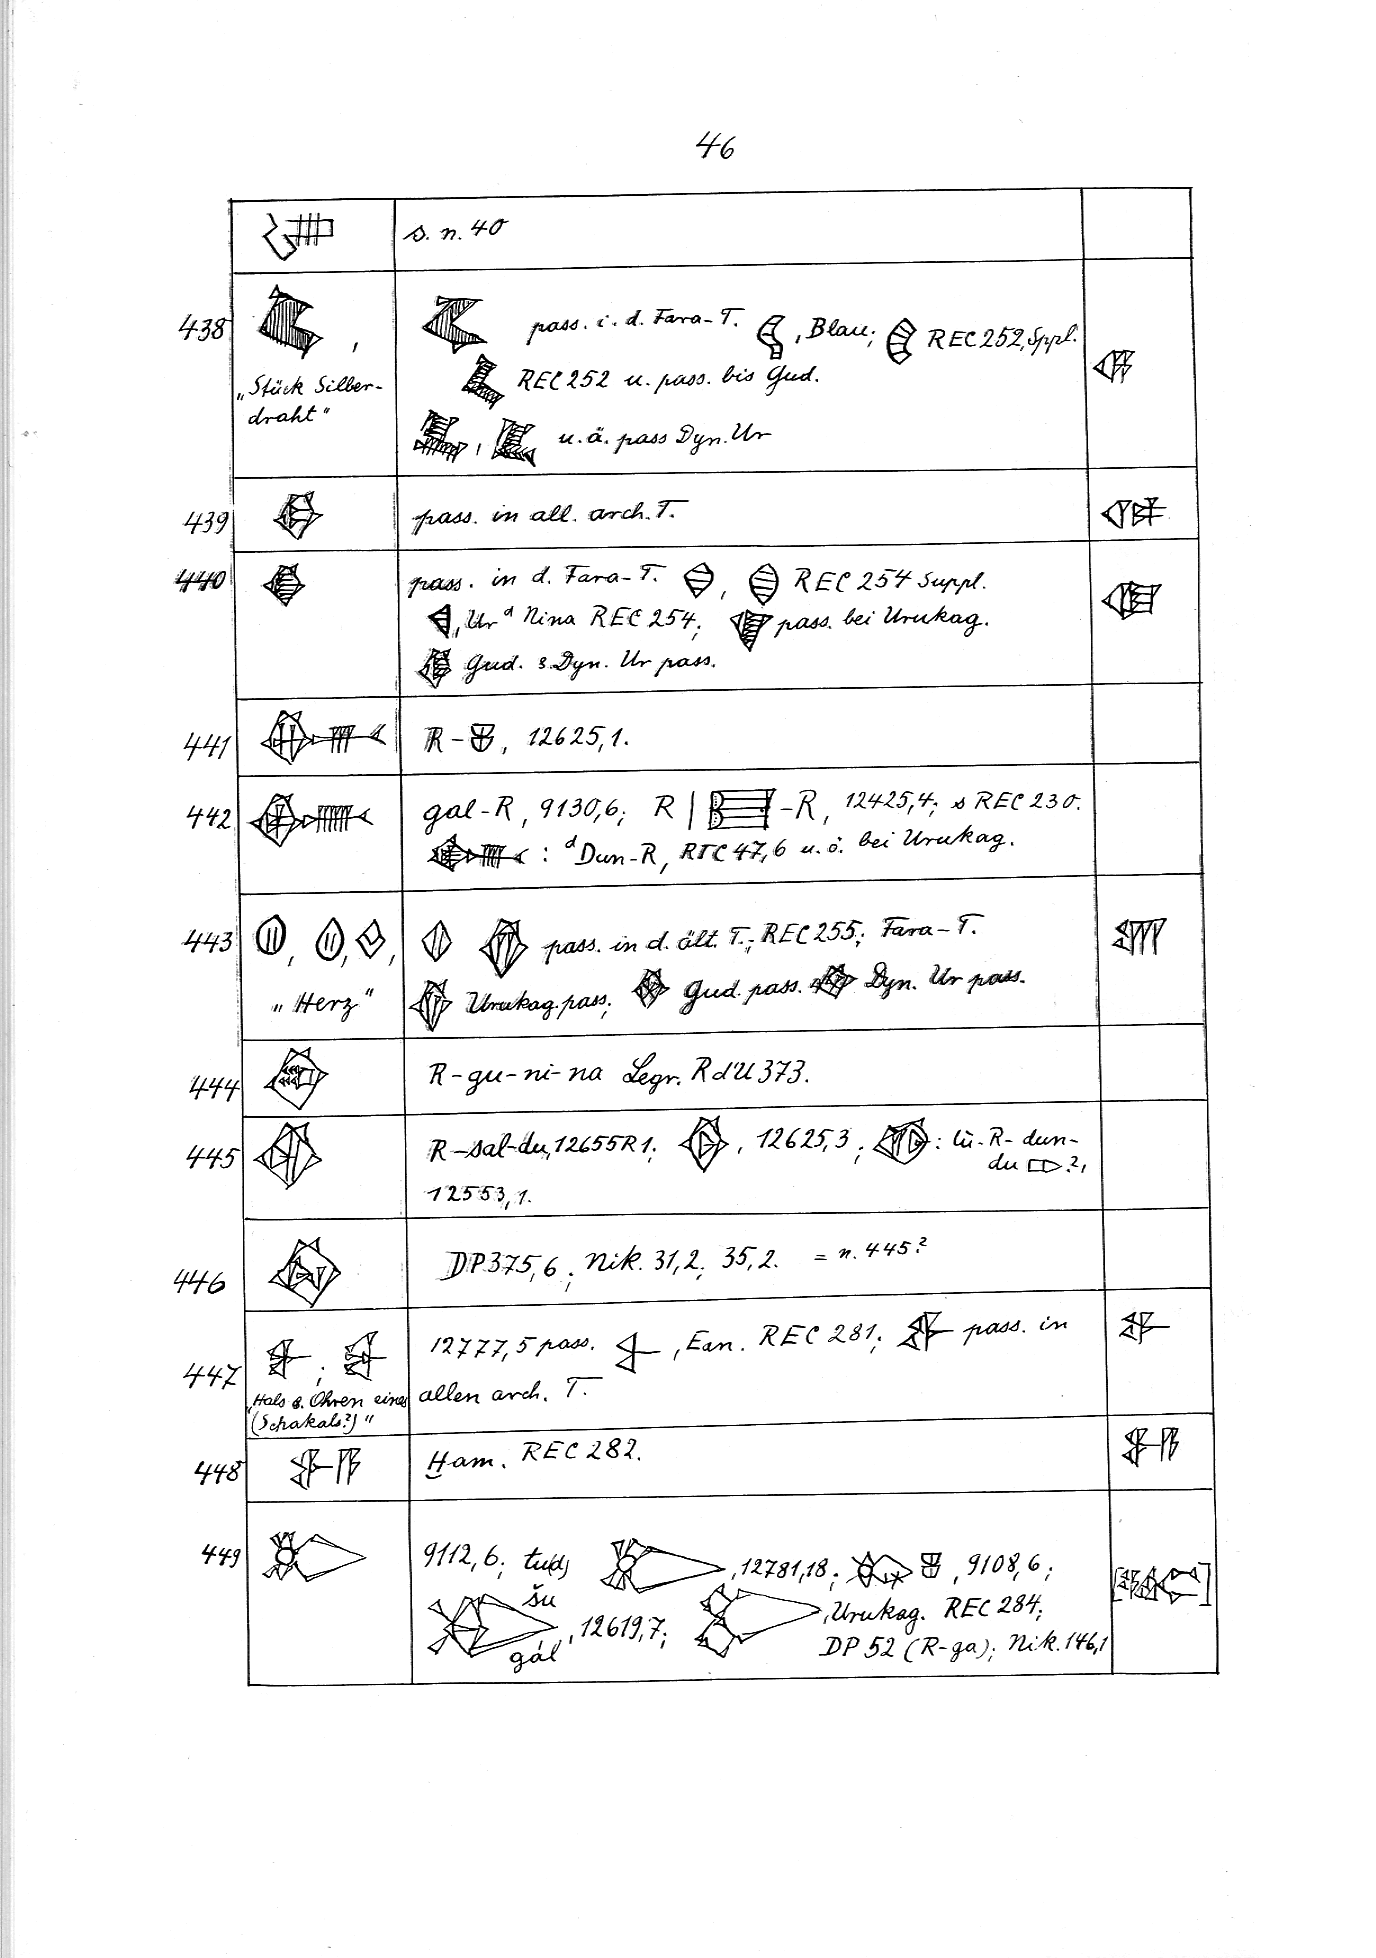 46
s. n. 40
438
pass. i. d. Fara-T. , Blau; REC 252, Sppl.
„Stück Silber-
draht“
REC 252 u. pass. bis Gud.
u. ä. pass Dyn. Ur
439 pass. in all. arch. T.
440 pass. in d. Fara-T. , REC 254 Suppl.
, Ur ᵈ Nina REC 254; pass. bei Urukag.
Gud. & Dyn. Ur pass.
441 R- , 12625,1.
442 gal-R, 9130,6; R | -R, 12425,4; s REC 230.
: ᵈDun-R, RTC 47,6 u. ö. bei Urukag.
443 , , , pass. in d. ält. T.; REC 255; Fara-T.
„Herz“
Urukag. pass; Gud. pass. Dyn. Ur pass.
444 R-gu-ni-na Legr. RdU 373.
445 R-sal-du, 12655 R 1; , 12625,3; : lù-R-dun-
du ?,
12553,1.
446 DP 375,6; Nik. 31,2; 35,2. = n. 445?
447 ; 12777,5 pass. , Ean. REC 281; pass. in
„Hals & Ohren eines
(Schakals?)“
allen arch. T.
448 Ḫam. REC 282.
449 9112,6; tu(d) , 12781,18; , 9108,6;
šu
gál , 12619,7; , Urukag. REC 284;
DP 52 (R-ga); Nik. 146,1